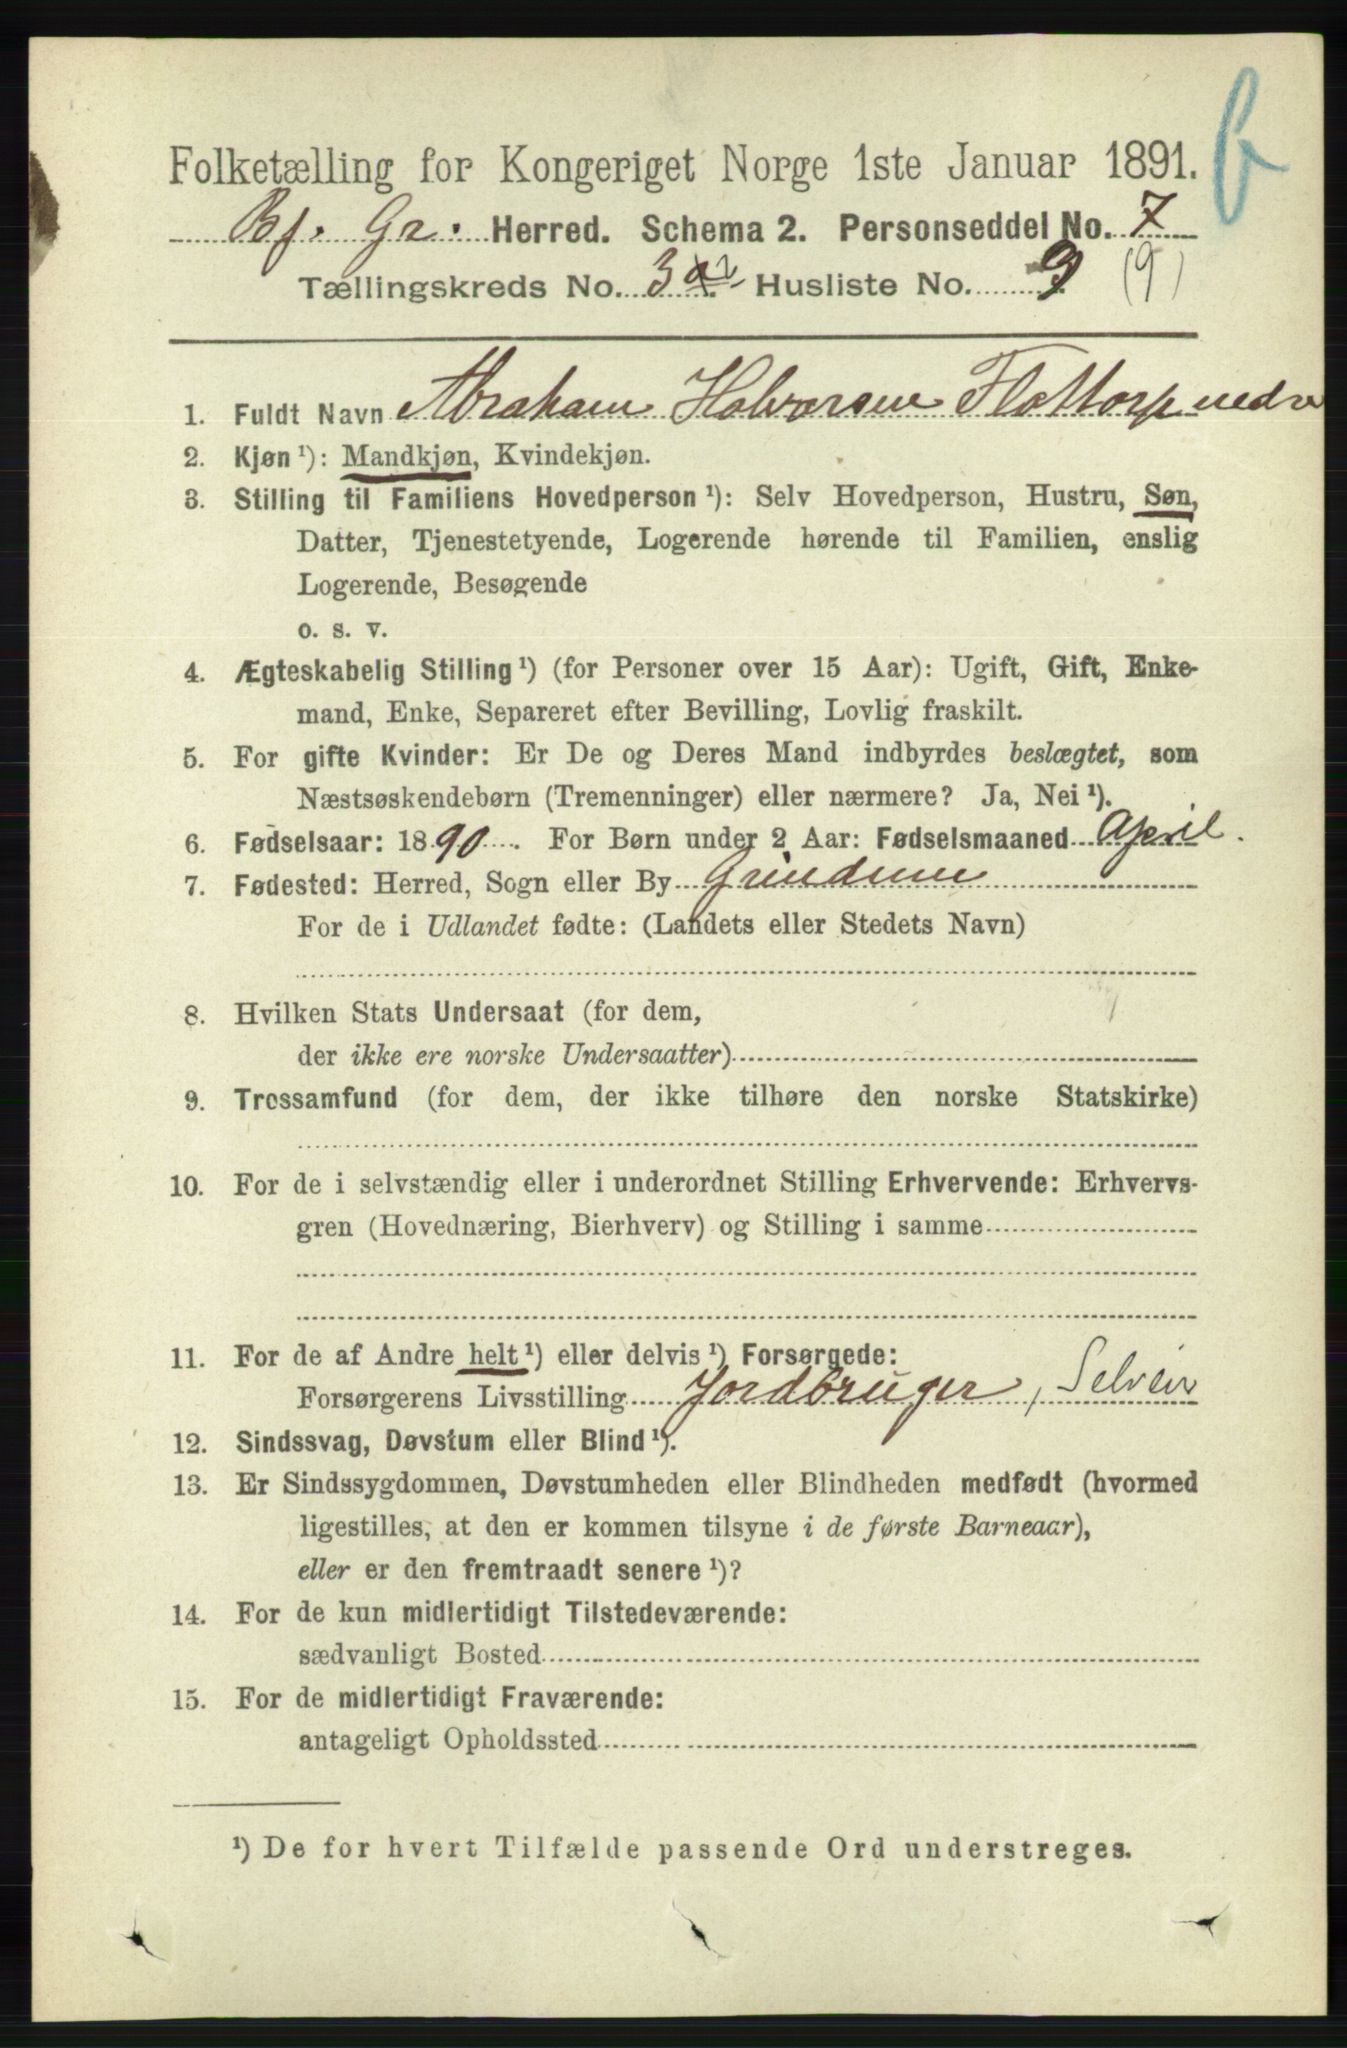 b
Folketælling for Kongeriget Norge 1ste Januar 1891.
Bj. Gr. Herred. Schema 2. Personseddel No. 7
Tællingskreds No. 3 Husliste No. 9 (9)
1. Fuldt Navn Abraham Halvorsen Flottorp nedre
2. Kjøn ¹): Mandkjøn, Kvindekjøn.
3. Stilling til Familiens Hovedperson ¹): Selv Hovedperson, Hustru, Søn,
Datter, Tjenestetyende, Logerende hørende til Familien, enslig
Logerende, Besøgende
o. s. v.
4. Ægteskabelig Stilling ¹) (for Personer over 15 Aar): Ugift, Gift, Enke-
mand, Enke, Separeret efter Bevilling, Lovlig fraskilt.
5. For gifte Kvinder: Er De og Deres Mand indbyrdes beslægtet, som
Næstsøskendebørn (Tremenninger) eller nærmere? Ja, Nei ¹).
6. Fødselsaar: 1890. For Børn under 2 Aar: Fødselsmaaned April.
7. Fødested: Herred, Sogn eller By Grindum
For de i Udlandet fødte: (Landets eller Stedets Navn)
8. Hvilken Stats Undersaat (for dem,
der ikke ere norske Undersaatter)
9. Trossamfund (for dem, der ikke tilhøre den norske Statskirke)
10. For de i selvstændig eller i underordnet Stilling Erhvervende: Erhvervs-
gren (Hovednæring, Bierhverv) og Stilling i samme
11. For de af Andre helt ¹) eller delvis ¹) Forsørgede:
Forsørgerens Livsstilling Jordbruger, Selveier
12. Sindssvag, Døvstum eller Blind ¹).
13. Er Sindssygdommen, Døvstumheden eller Blindheden medfødt (hvormed
ligestilles, at den er kommen tilsyne i de første Barneaar),
eller er den fremtraadt senere ¹)?
14. For de kun midlertidigt Tilstedeværende:
sædvanligt Bosted
15. For de midlertidigt Fraværende:
antageligt Opholdssted
¹) De for hvert Tilfælde passende Ord understreges.